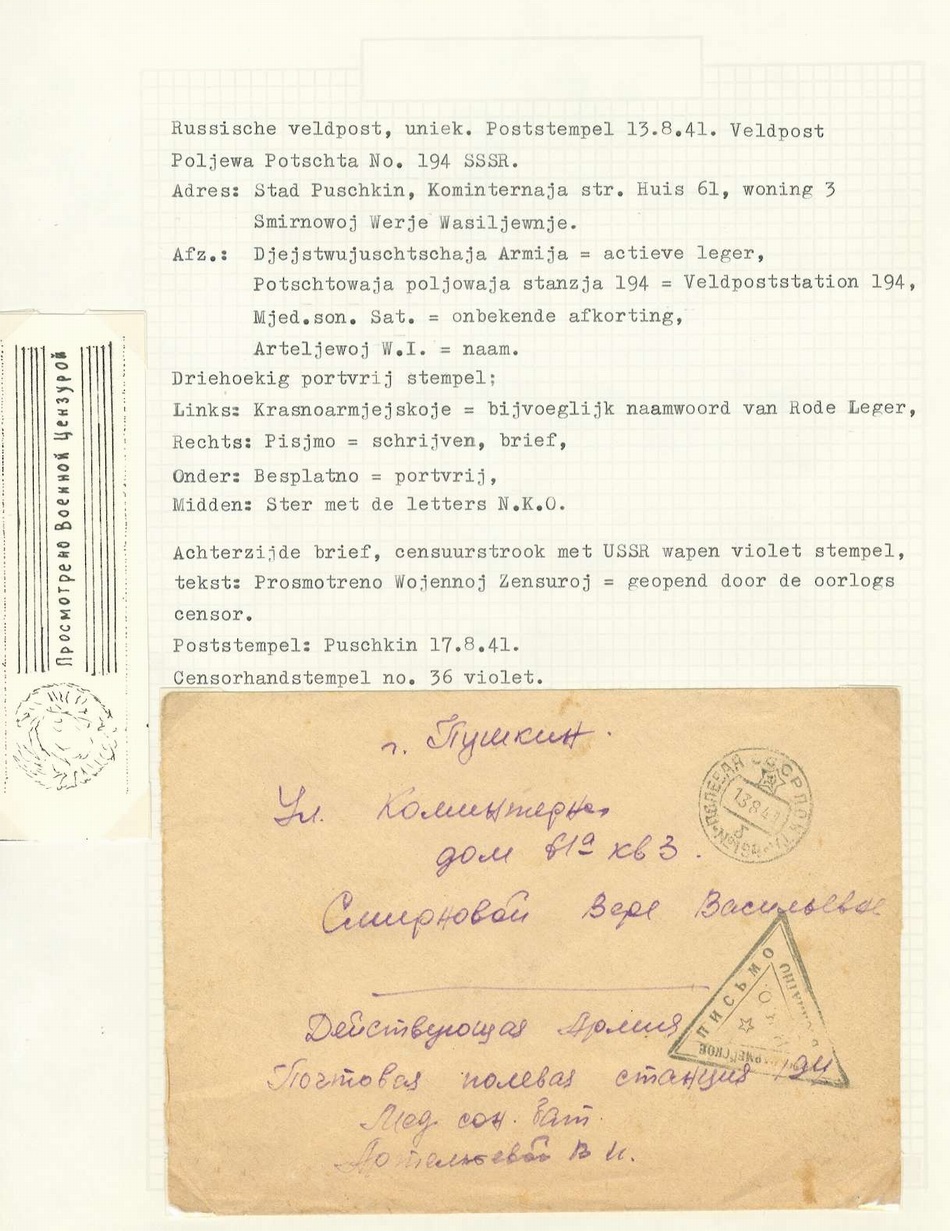 Russische veldpost, uniek. Poststempel 13.8.41. Veldpost
Poljewa Potschta No. 194 SSSR.
Adres: Stad Puschkin, Kominternaja str. Huis 61, woning 3
Smirnowoj Werje Wasiljewnje.
Afz.: Djejstwujuschtschaja Armija = actieve leger,
Potschtowaja poljowaja stanzja 194 = Veldpoststation 194,
Mjed.son. Sat. = onbekende afkorting,
Arteljewoj W.I. = naam.
Driehoekig portvrij stempel;
Links: Krasnoarmjejskoje = bijvoeglijk naamwoord van Rode Leger,
Rechts: Pisjmo = schrijven, brief,
Onder: Besplatno = portvrij,
Midden: Ster met de letters N.K.O.
Achterzijde brief, censuurstrook met USSR wapen violet stempel,
tekst: Prosmotreno Wojennoj Zensuroj = geopend door de oorlogs
censor.
Poststempel: Puschkin 17.8.41.
Censorhandstempel no. 36 violet.
Просмотрено Военной Цензурой
г. Пушкин.
Ул. Коминтерна
дом 61а кв 3.
Смирновой Вере Васильевне
Действующая Армия
Почтовая полевая станция 194
Мед. сан. бат.
В И.
ПОЛЕВАЯ СССР
13.8.41
б
ПИСЬМО